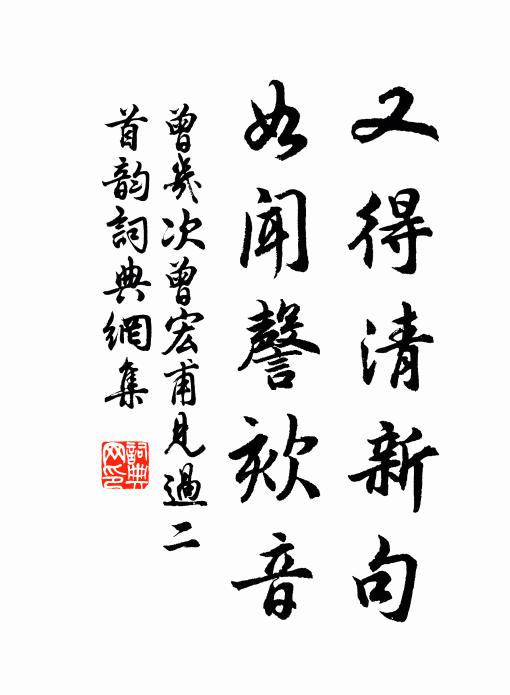 又得清新句
如聞謦欬音
曾幾次曾宏甫見過二
首韵詞典網集
詞典
网印